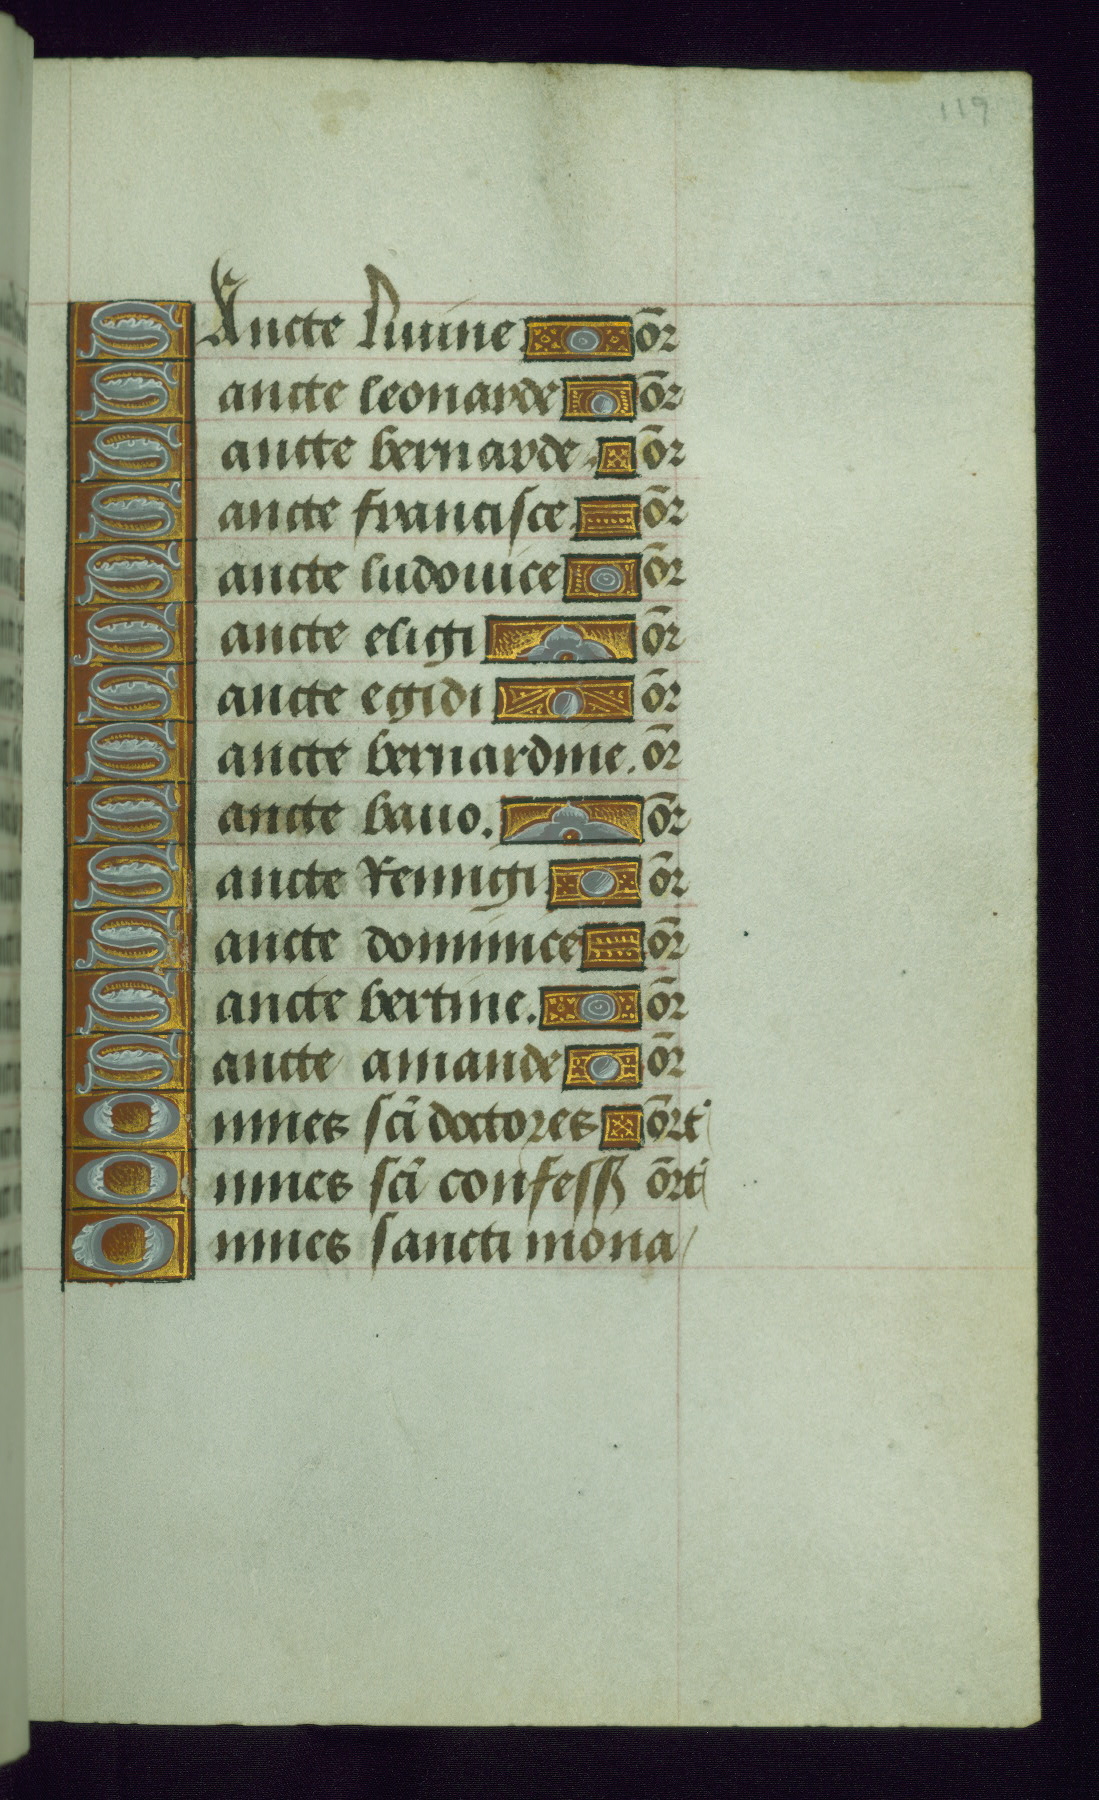 119
SAncte Liuine or̄
Sancte leonarde or̄
Sancte bernarde or̄
Sancte francisce. or̄
Sancte ludouice or̄
Sancte eligi or̄
Sancte egidi or̄
Sancte bernardine. or̄
Sancte bauo. or̄
Sancte Remigi or̄
Sancte dominice or̄
Sancte bertine. or̄
Sancte amande or̄
Omnes scī doctores ort̄
Omnes scī confess̄ ort̄
Omnes sancti mona/